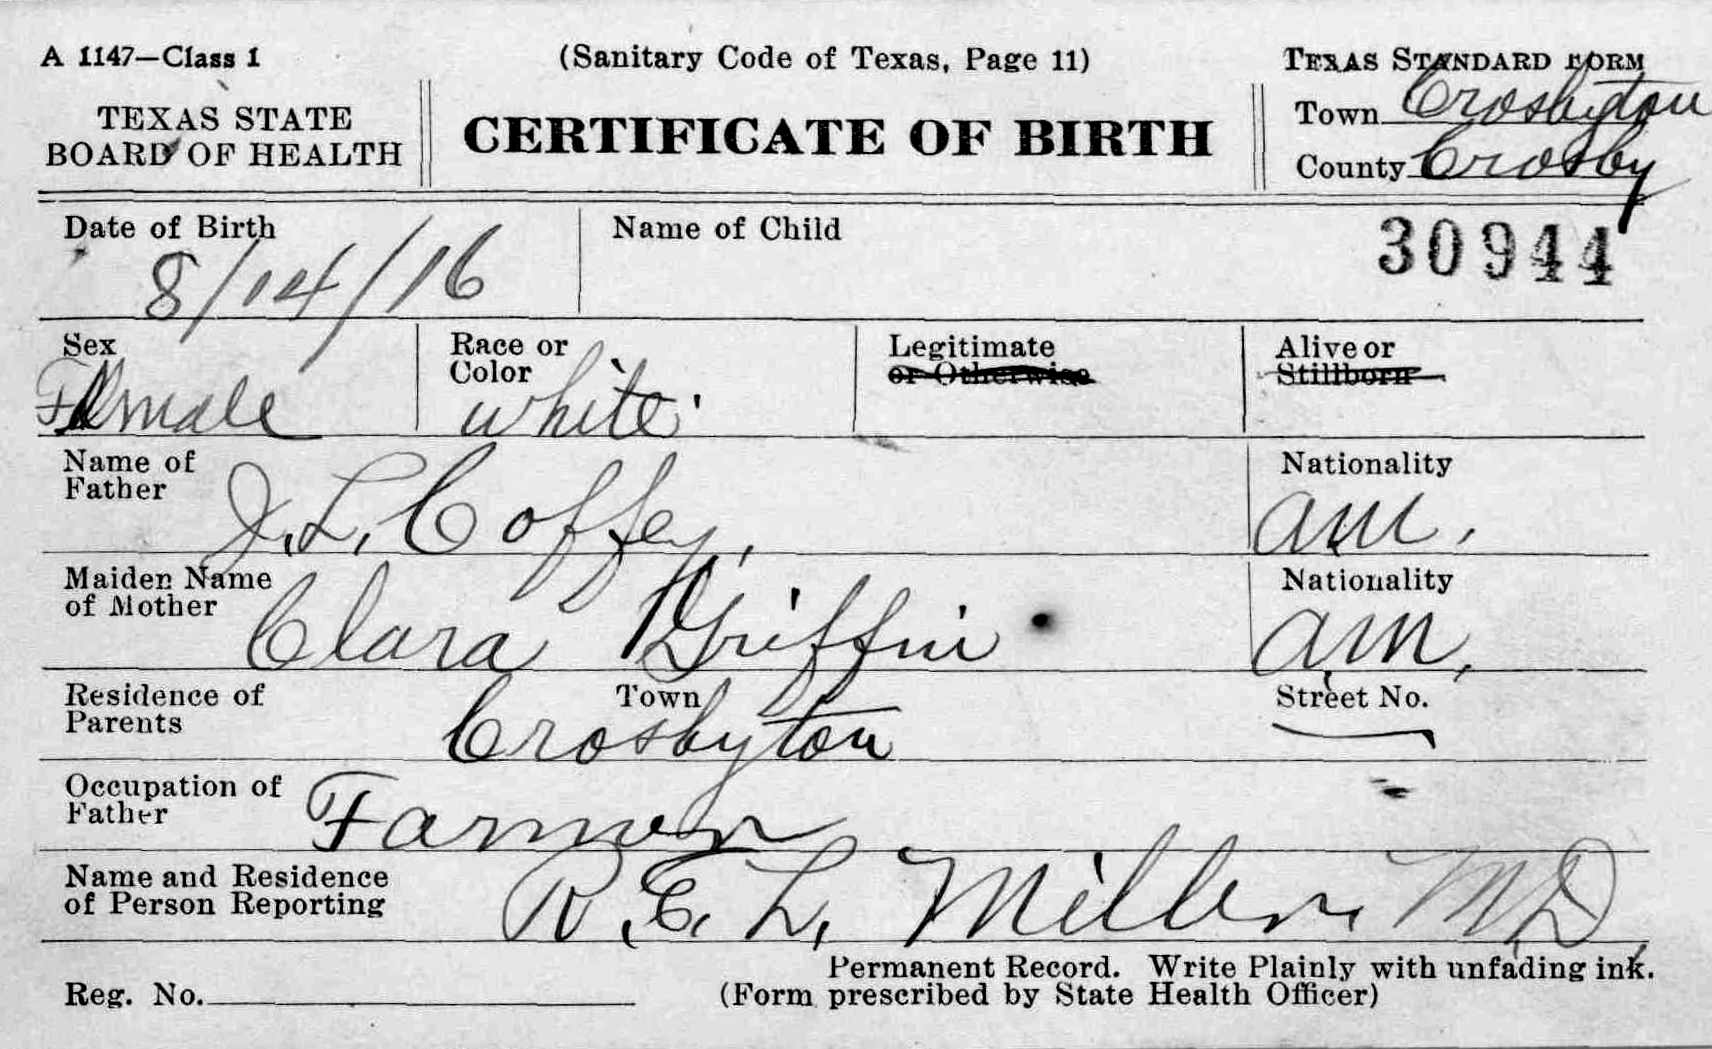 A 1147—Class 1
(Sanitary Code of Texas, Page 11)
TEXAS STANDARD FORM
TEXAS STATE
BOARD OF HEALTH
CERTIFICATE OF BIRTH
Town Crosbyton
County Crosby
Date of Birth
8/14/16
Name of Child
30944
Sex
Female
Race or
Color
white
Legitimate
or Otherwise
Alive or
Stillborn
Name of
Father
J. L. Coffey,
Nationality
am.
Maiden Name
of Mother
Clara Griffin
Nationality
am,
Residence of
Parents
Town
Crosbyton
Street No.
Occupation of
Father
Farmer
Name and Residence
of Person Reporting
R. E. L. Miller. M.D.
Permanent Record. Write Plainly with unfading ink.
Reg. No.
(Form prescribed by State Health Officer)